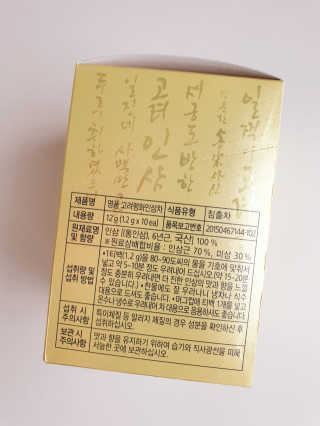 고려인삼
제품명 명품 고려평화인삼차 식품유형 침출차
내용량 12 g (1.2 g x 10 ea) 품목보고번호 20150467144-102
원재료명 및 함량 인삼 [(통인삼), 6년근, 국산] 100 %
※ 원료삼배합비율 : 인삼근 70 %, 미삼 30 %
섭취량 및 섭취 방법 •1티백(1.2 g)을 80~90℃의 물을 기호에 맞춰서
넣고 약 5~10분 정도 우려내어 드십시오.(약 15~20분
정도 충분히 우려내면 더 진한 인삼의 맛과 향을 느낄
수 있습니다.) •찬물에도 잘 우러나니 냉차나 식수
대용으로 드셔도 좋습니다. •머그컵에 티백 1개를 넣고
온수나 냉수로 우려내어 차 대용으로 음용하셔도 좋습니다.
섭취 시 주의사항 특이체질 등 알러지 체질의 경우 성분을 확인하신 후
섭취하십시오.
보관 시 주의사항 맛과 향을 유지하기 위하여 습기와 직사광선을 피해
서늘한 곳에 보관하십시오.